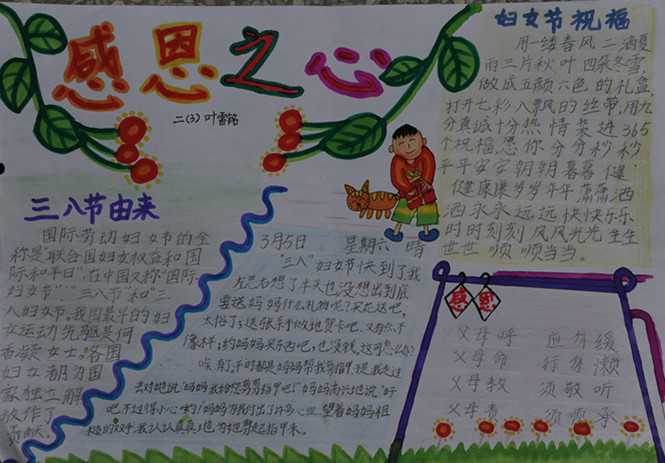 感恩之心
二(3) 叶雪铭
妇女节祝福
用一缕春风二洒夏
雨三片秋叶四袋冬雪,
做成五颜六色的礼盒,
打开七彩八飘的丝带,用九
分真诚十分热情装进365
个祝福愿你分分秒秒
平平安安朝朝暮暮健
健康康岁岁年年潇潇洒
洒永永远远快快乐乐
时时刻刻风风光光生生
世世顺顺当当。
三八节由来
国际劳动妇女节的全
称是联合国妇女权益和国
际和平日",在中国又称"国际
妇女节"、"三八节"和"三
八妇女节。我国最早的妇
女运动先驱是何
香凝女士。各国
妇女都为国
家独立解
放作了
贡献。
3月5日 星期六 晴
"三八"妇女节快到了我
左思右想了半天也没想出到底
要送妈妈什么礼物呢?买花送吧,
太俗了;送张手做地贺卡吧,又有点不
像样;约妈妈买东西吧,也没钱。这可怎么办?
唉,有了,平时都是妈妈帮我剪指甲,
去对她说:"妈妈我给您剪剪指甲吧!"妈妈高兴地说:"好
吧,不过得小心哟!"妈妈为我付出了许多心血,望着妈妈粗
糙的双手,我认认真真地为她剪起指甲来。
感恩
父母呼 应勿缓
父母命 行勿懒
父母教 须敬听
父母责 须顺承